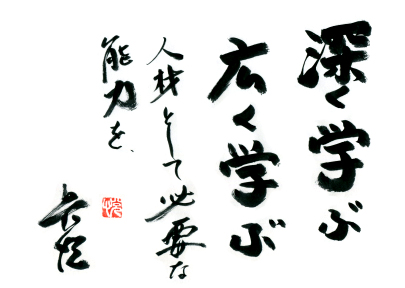 深く学ぶ
広く学ぶ
人材として必要な
能力を、